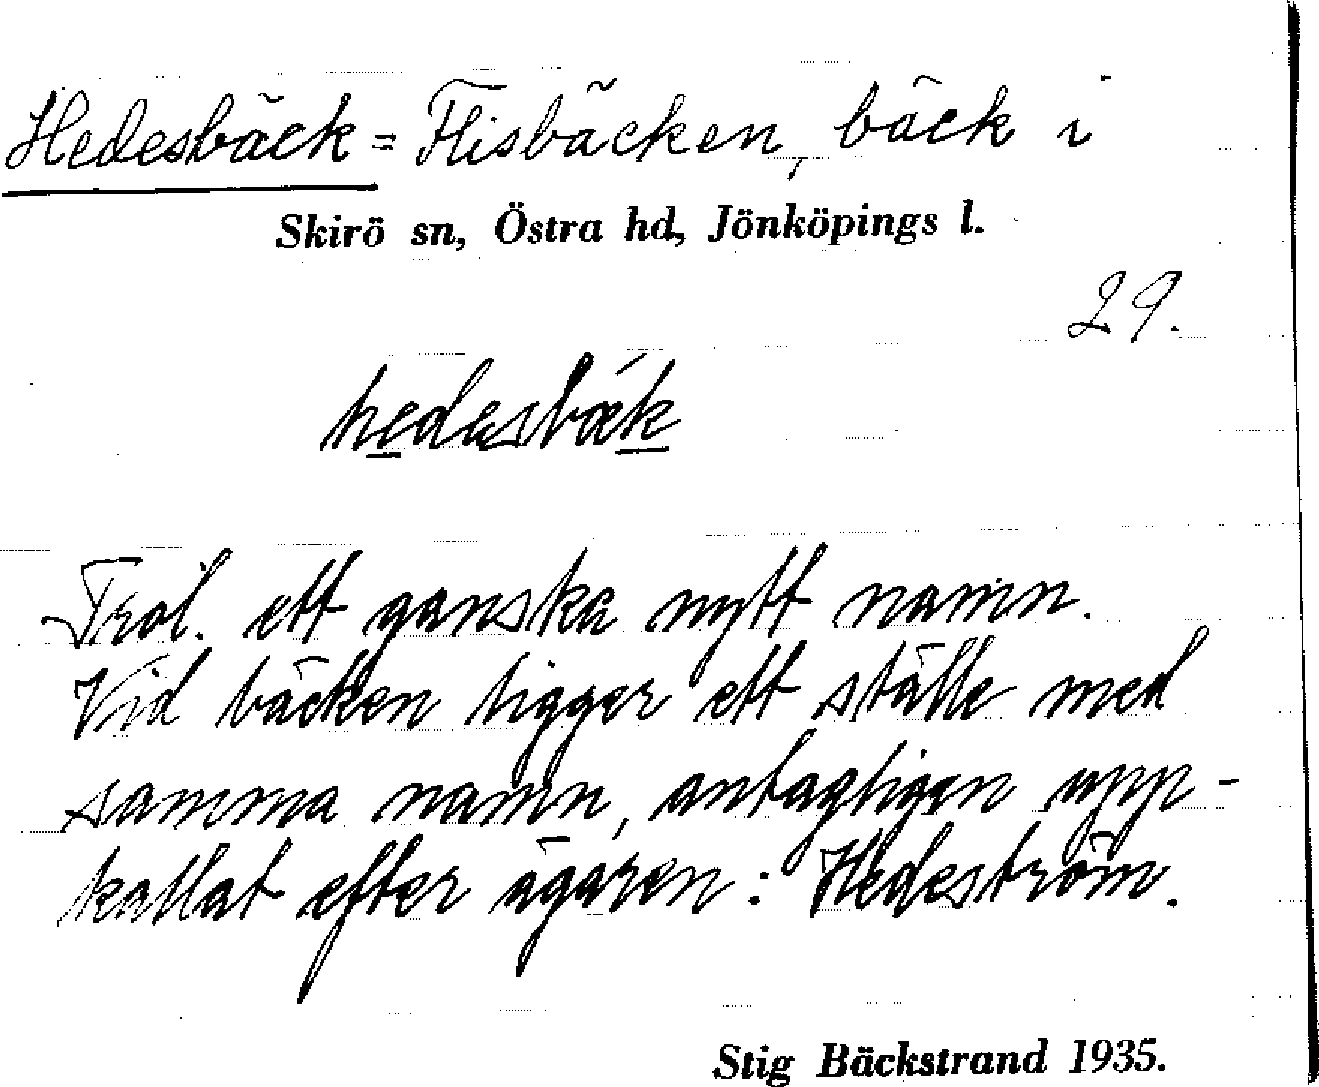 Hedesbäck = Flisbäcken, bäck i
Skirö sn, Östra hd, Jönköpings l.
29.
hedasbæk
Trol. ett ganska nytt namn.
Vid bäcken ligger ett ställe med
samma namn, antagligen upp-
kallat efter ägaren: Hedeström.
Stig Bäckstrand 1935.